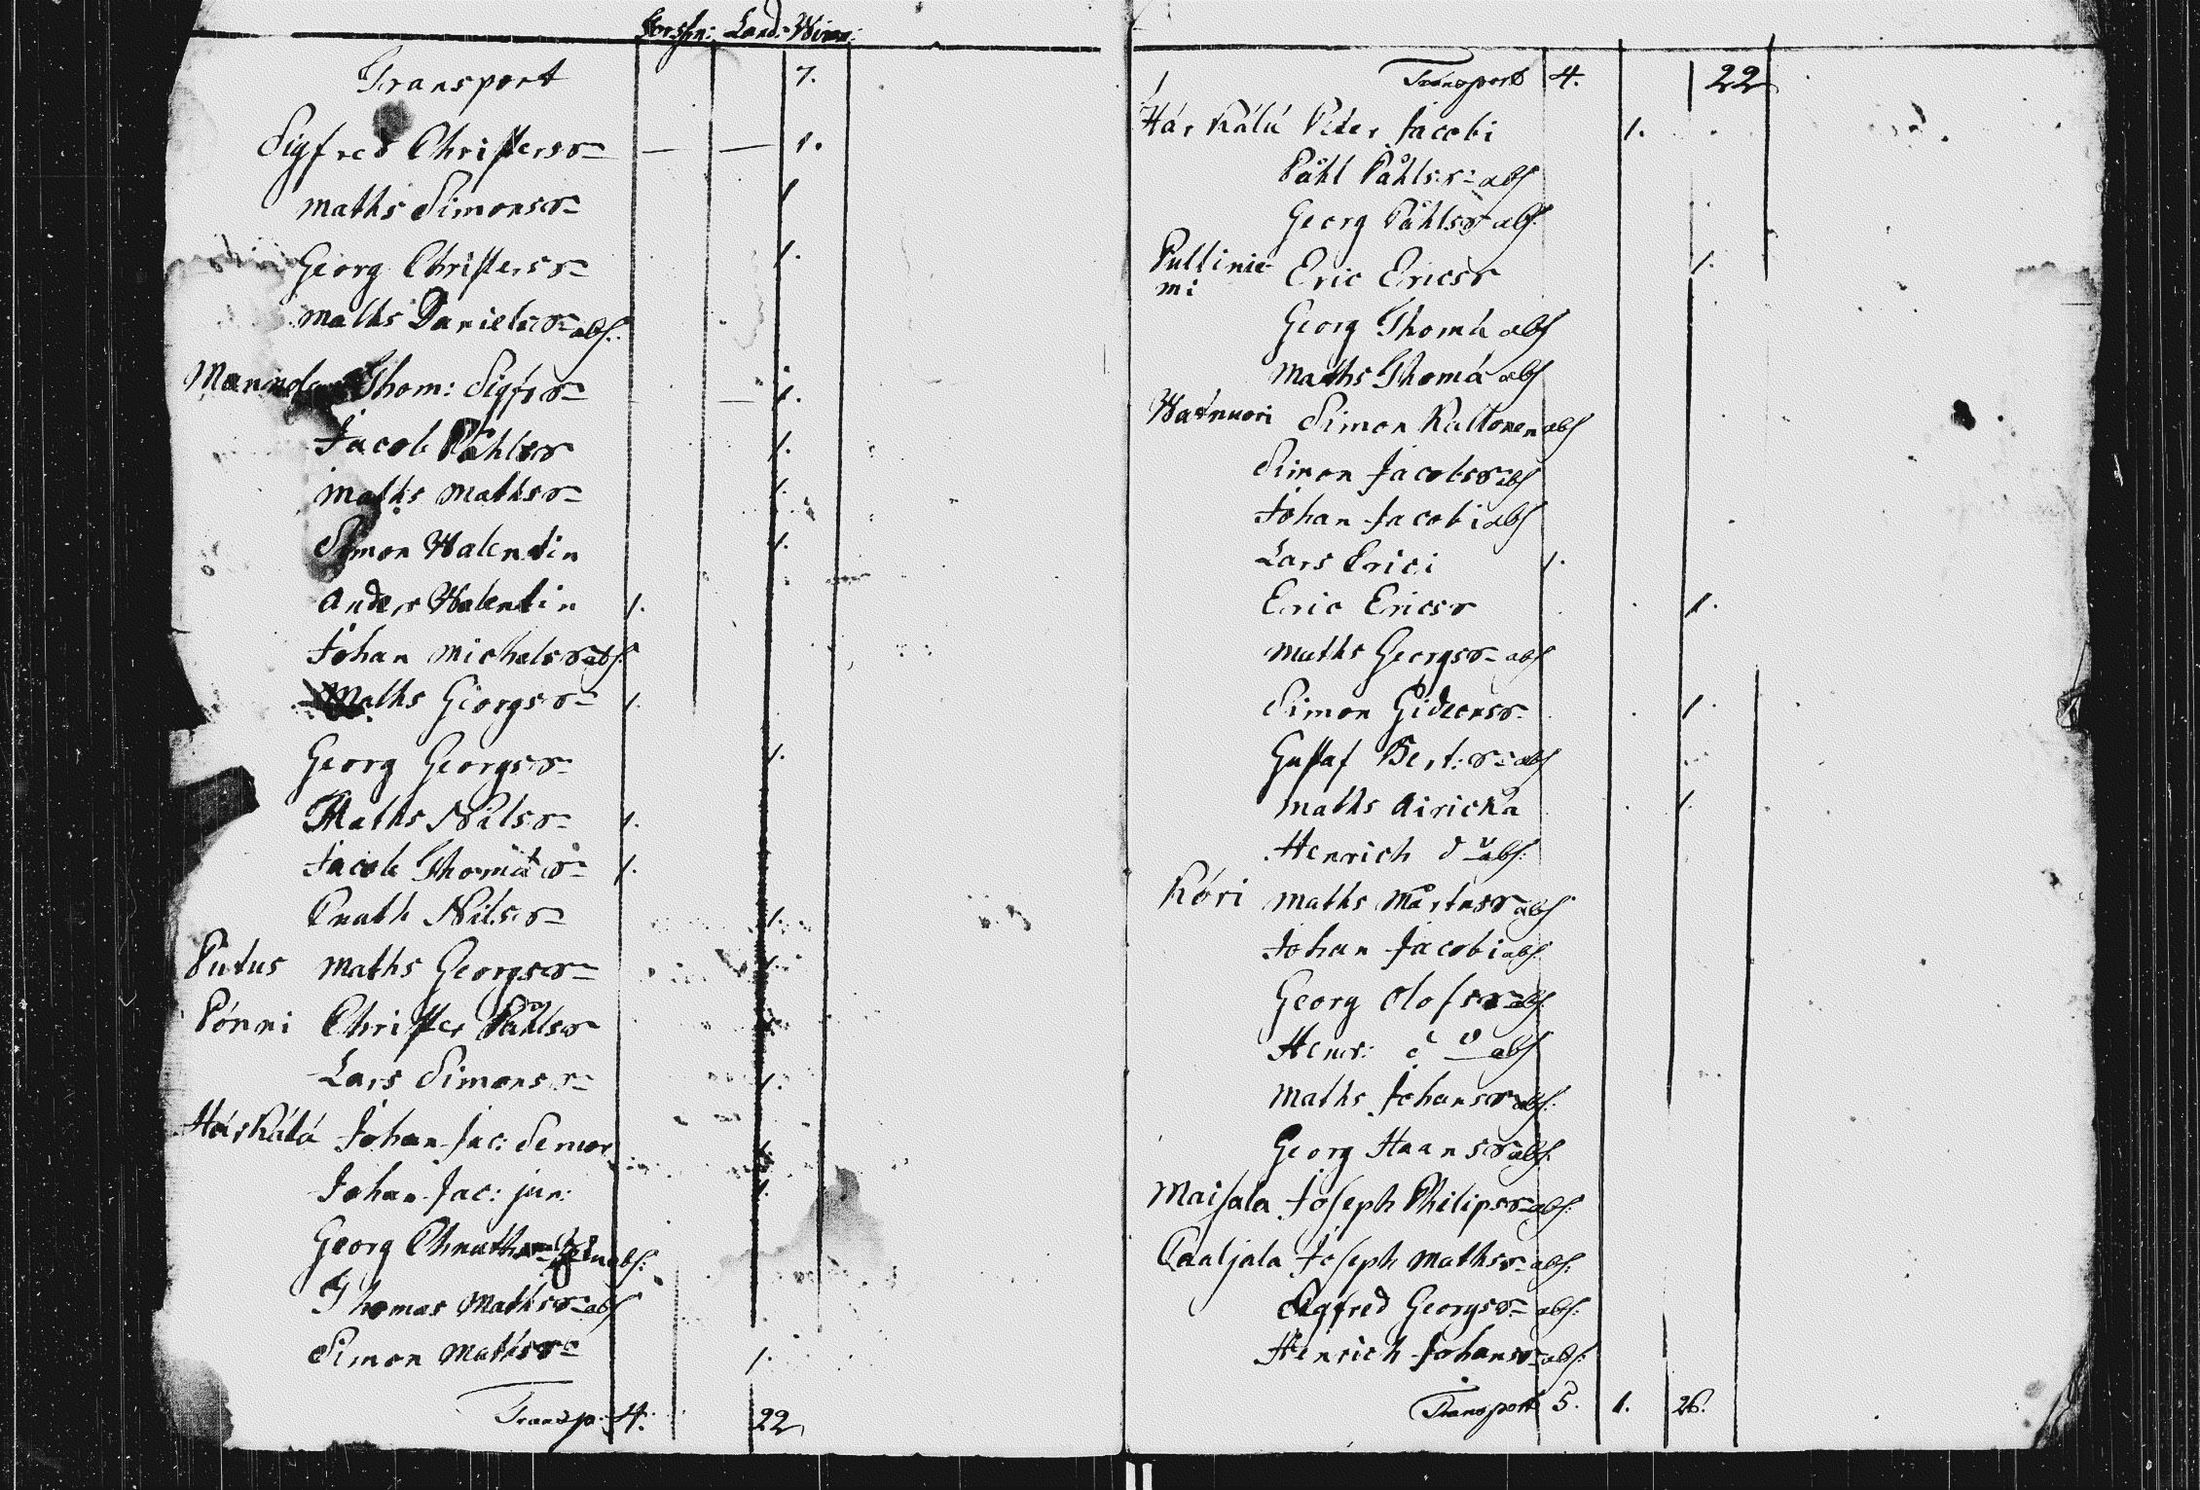 Forspn: Land: Winn:
Transport 7.
Sigfred Christersr — — 1.
Maths Simonsr 1
Georg Christersr 1.
Maths Danielsr abs:
Thom: Sigfrsr — 1.
Jacob Påhlsr 1.
Maths Mathsr 1.
Simon Walentin 1.
Anders Walentin 1.
Johan Michelsr abs:
Maths Georgsr 1.
Georg Georgsr 1.
Maths Nilsr 1.
Jacob Thomæsr 1.
Cnuth Nilsr 1.
Putus Maths Georgsr 1.
Pönni Christer Påhlsr 1.
Lars Simonsr 1.
Härkälä Johan Jac: Senior 1.
Johan Jac: jun: 1.
Georg abs:
Thomas Mathsr abs
Simon Mathsr 1.
Transp: 4. 22
Transport 4. 22
Härkälä Peter Jacobi 1.
Påhl Påhlsr abs
Georg Påhlsr abs
Pullinie-
mi Eric Ericsr 1.
Georg Thomæ abs
Maths Thomæ abs
Watnuori Simon Kultonen abs
Simon Jacobsr abs
Johan Jacobi abs
Lars Erici 1.
Eric Ericsr 1.
Maths Georgsr abs
Simon Gideonsr 1.
Gustaf Bert:sr abs
Maths Airickä 1.
Henrich do abs:
Köri Maths Mårtensr abs
Johan Jacobi abs
Georg Olofsr abs
Henr: do abs
Maths Johansr abs:
Georg Haansr abs
Maisala Joseph Philipsr abs:
Caaljala Joseph Mathsr abs:
Sigfred Georgsr abs:
Henrich Johansr abs:
Transport 5. 1. 26.